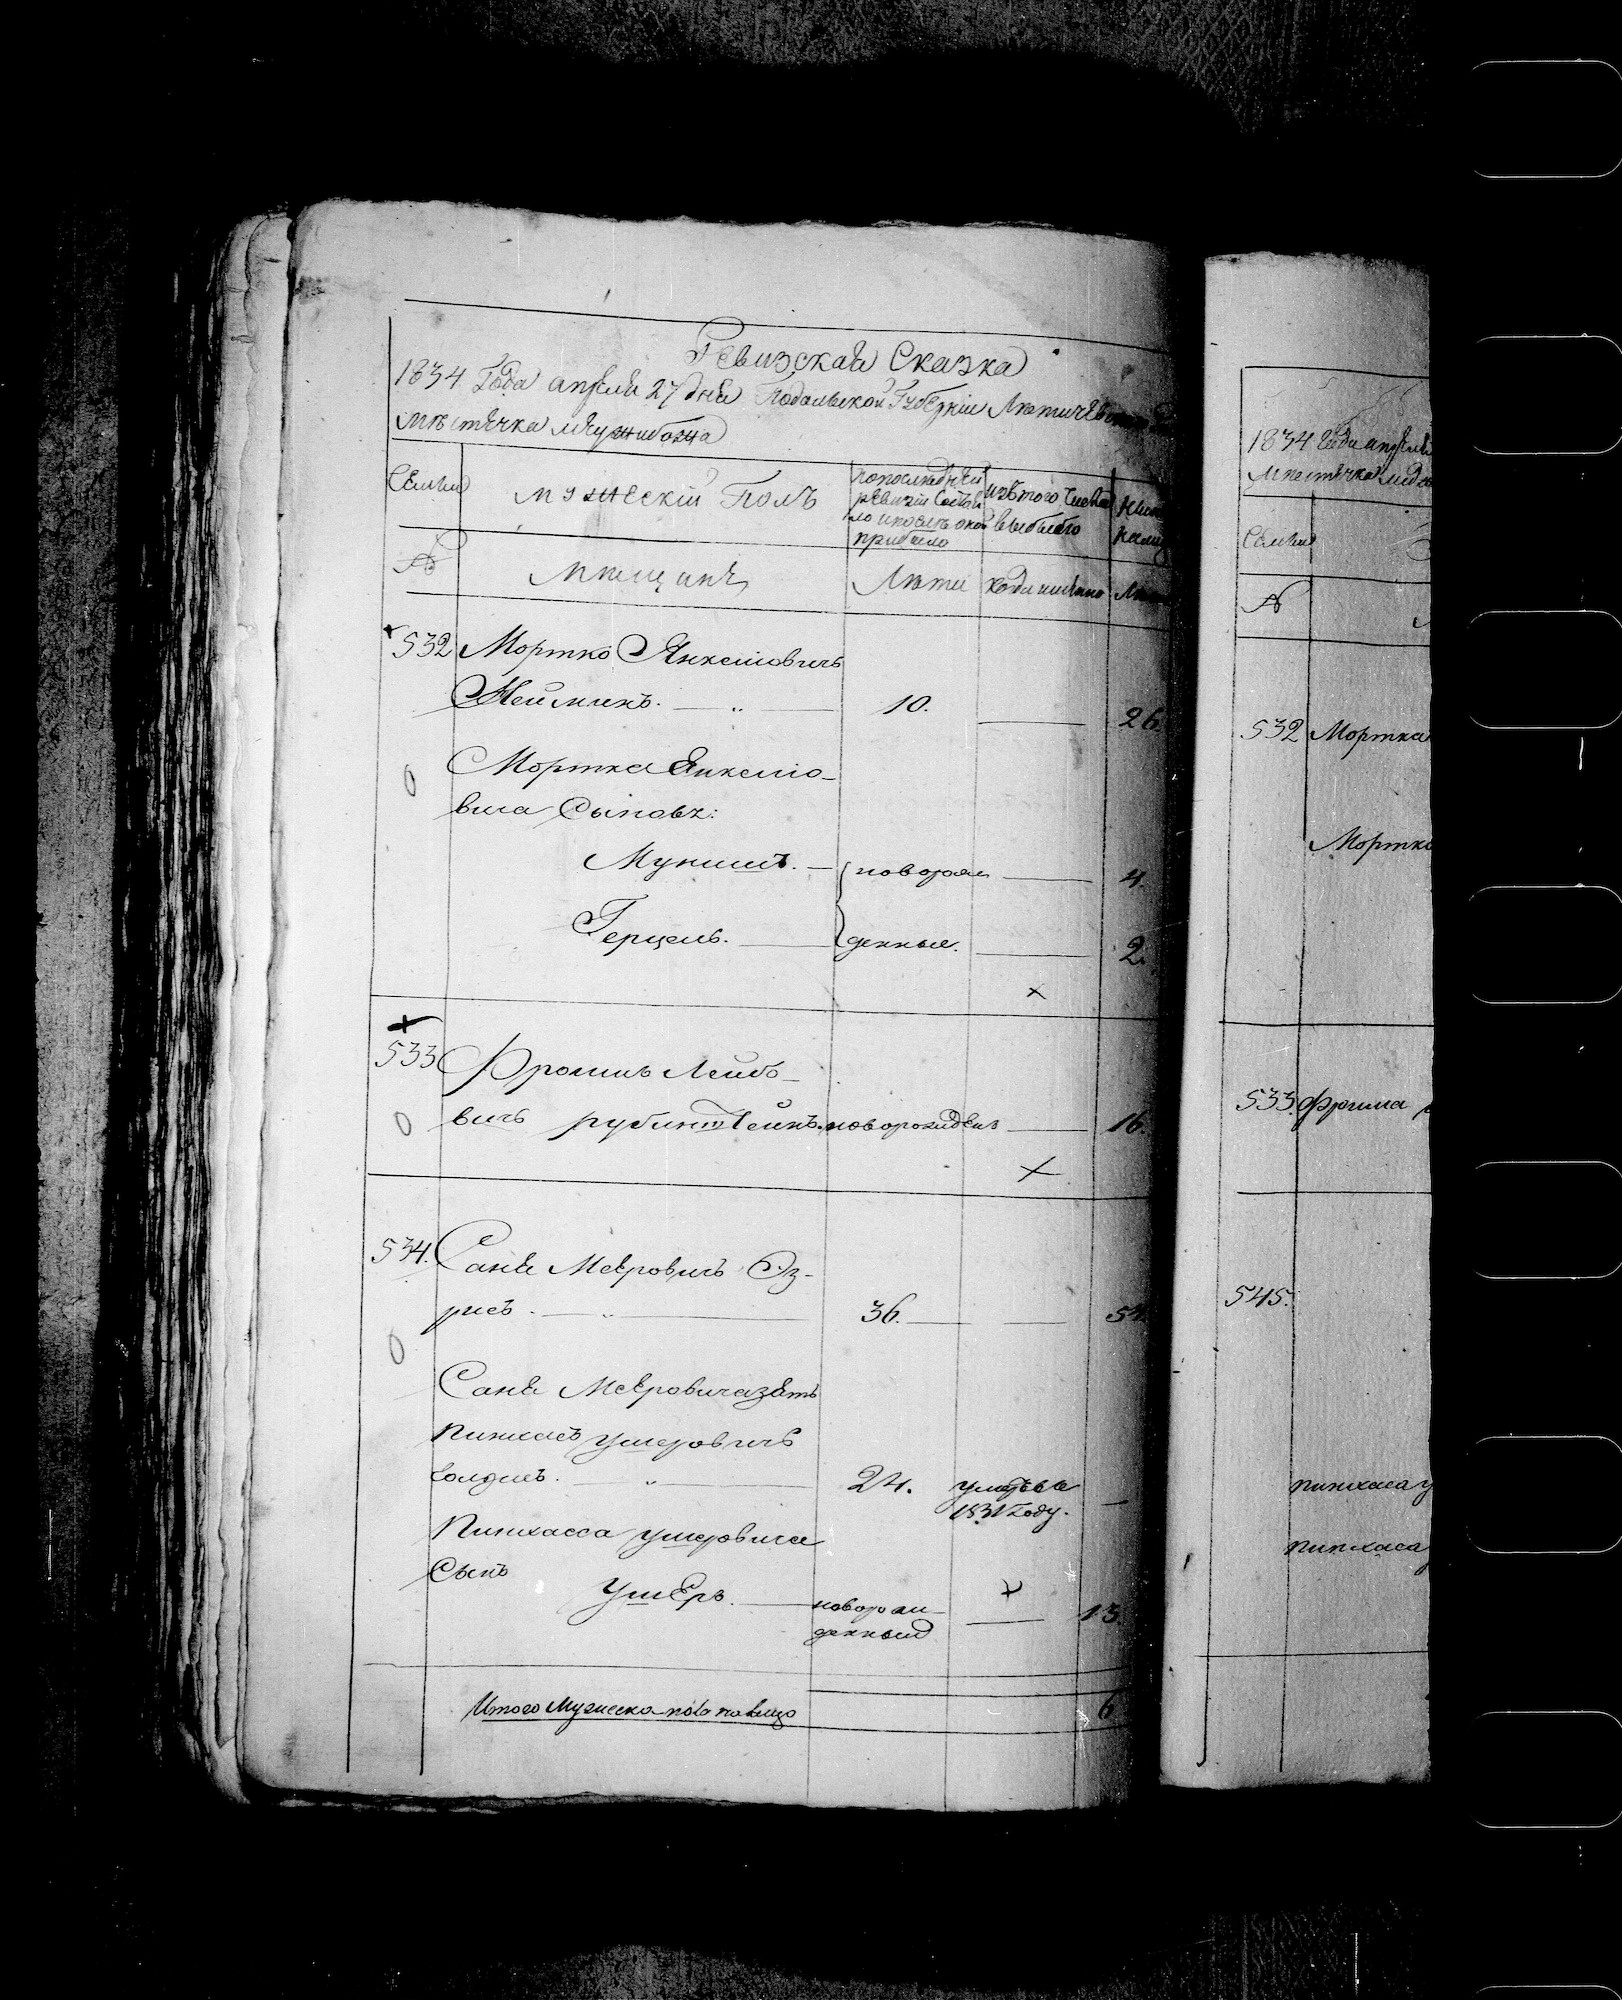 Ревизская Сказка
1834 Года апреля 27 дня Подольской Губернии Летичевского
мѣстечка межибожа
Семьи
мужескій Полъ
по последней
ревизіи состоя
ло и после оной
прибыло
изътого числа
выбыло
№
мѣщанъ
Лѣта
когда имянно
Лѣта
532 Мортко Янкелiовичъ
Нейманъ. 10. 26.
Мортка Янкелiо-
вича Сыновъ:
Мунишъ. новорож 4.
Герцель. денные. 2.
533 Фроимъ Лейбо-
вичъ рубинштейнъ. новорожден 16.
534. Саня Мееровичъ Эз-
рисъ. 36. 54.
Саня Меировича зять
Пинхасъ ушеровичъ
Голдисъ. 24. умре въ
1831 Году.
Пинхасса ушеровича
Сынъ
Ушеръ. новорож-
денный 13.
Итого Мужеска пола на лицо 6
1834 Года апреля
Мѣстечка меджи
Семьи
№
532 Мортка
Мортко
533. Фроима
545.
пинхаса у
пинхаса